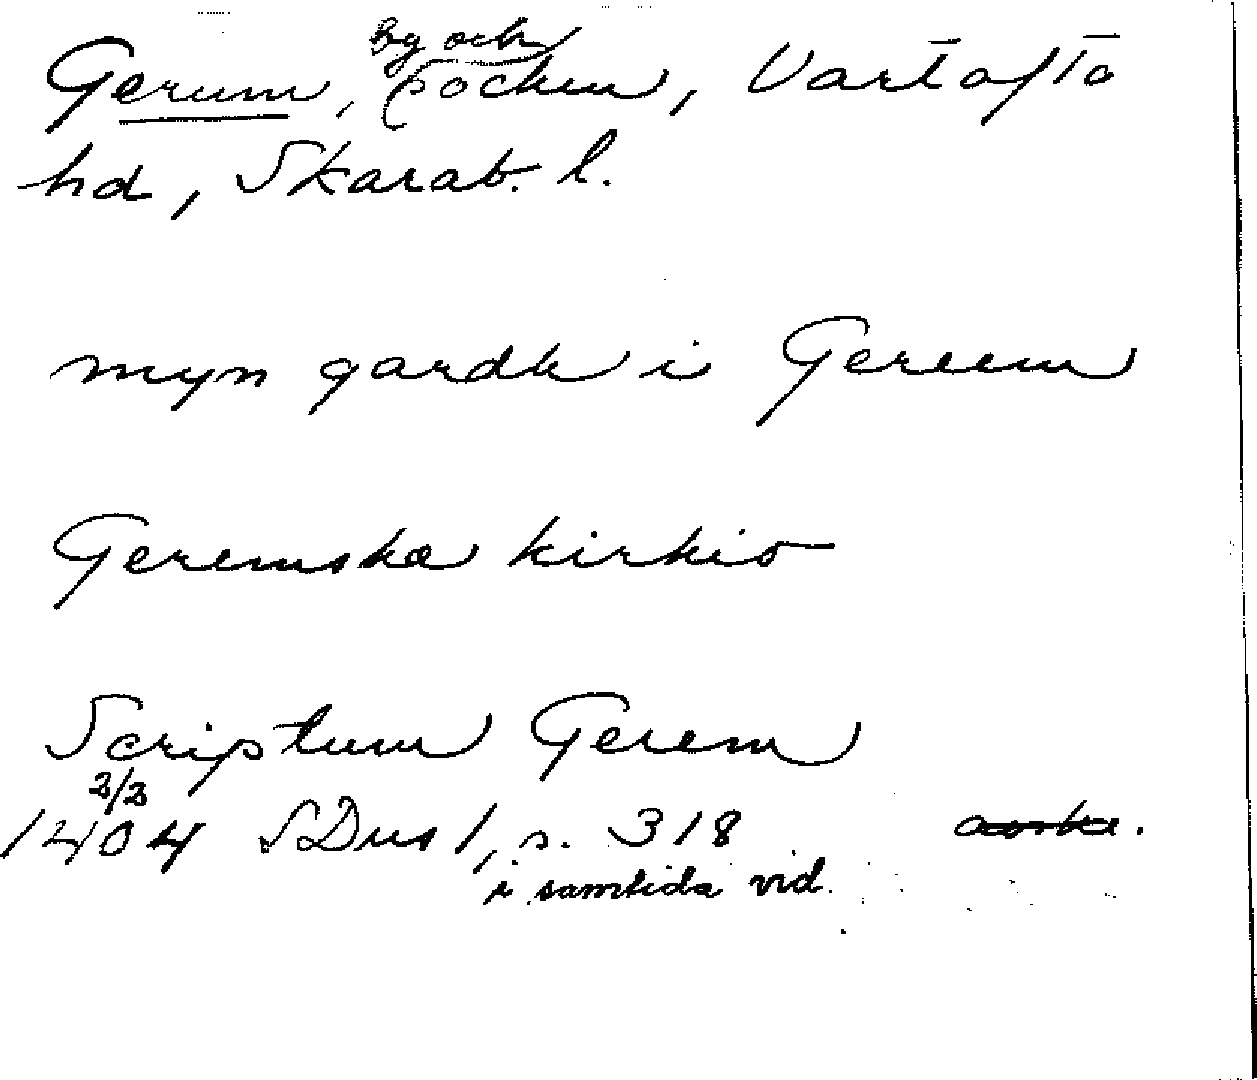 Gerum, by och socken, Vartofta
hd, Skarab. l.
myn gardh i Gereem
Geremska kirkio
Scriptum Gerem
2/2
1404 SDns 1, s. 318
i samtida vid.